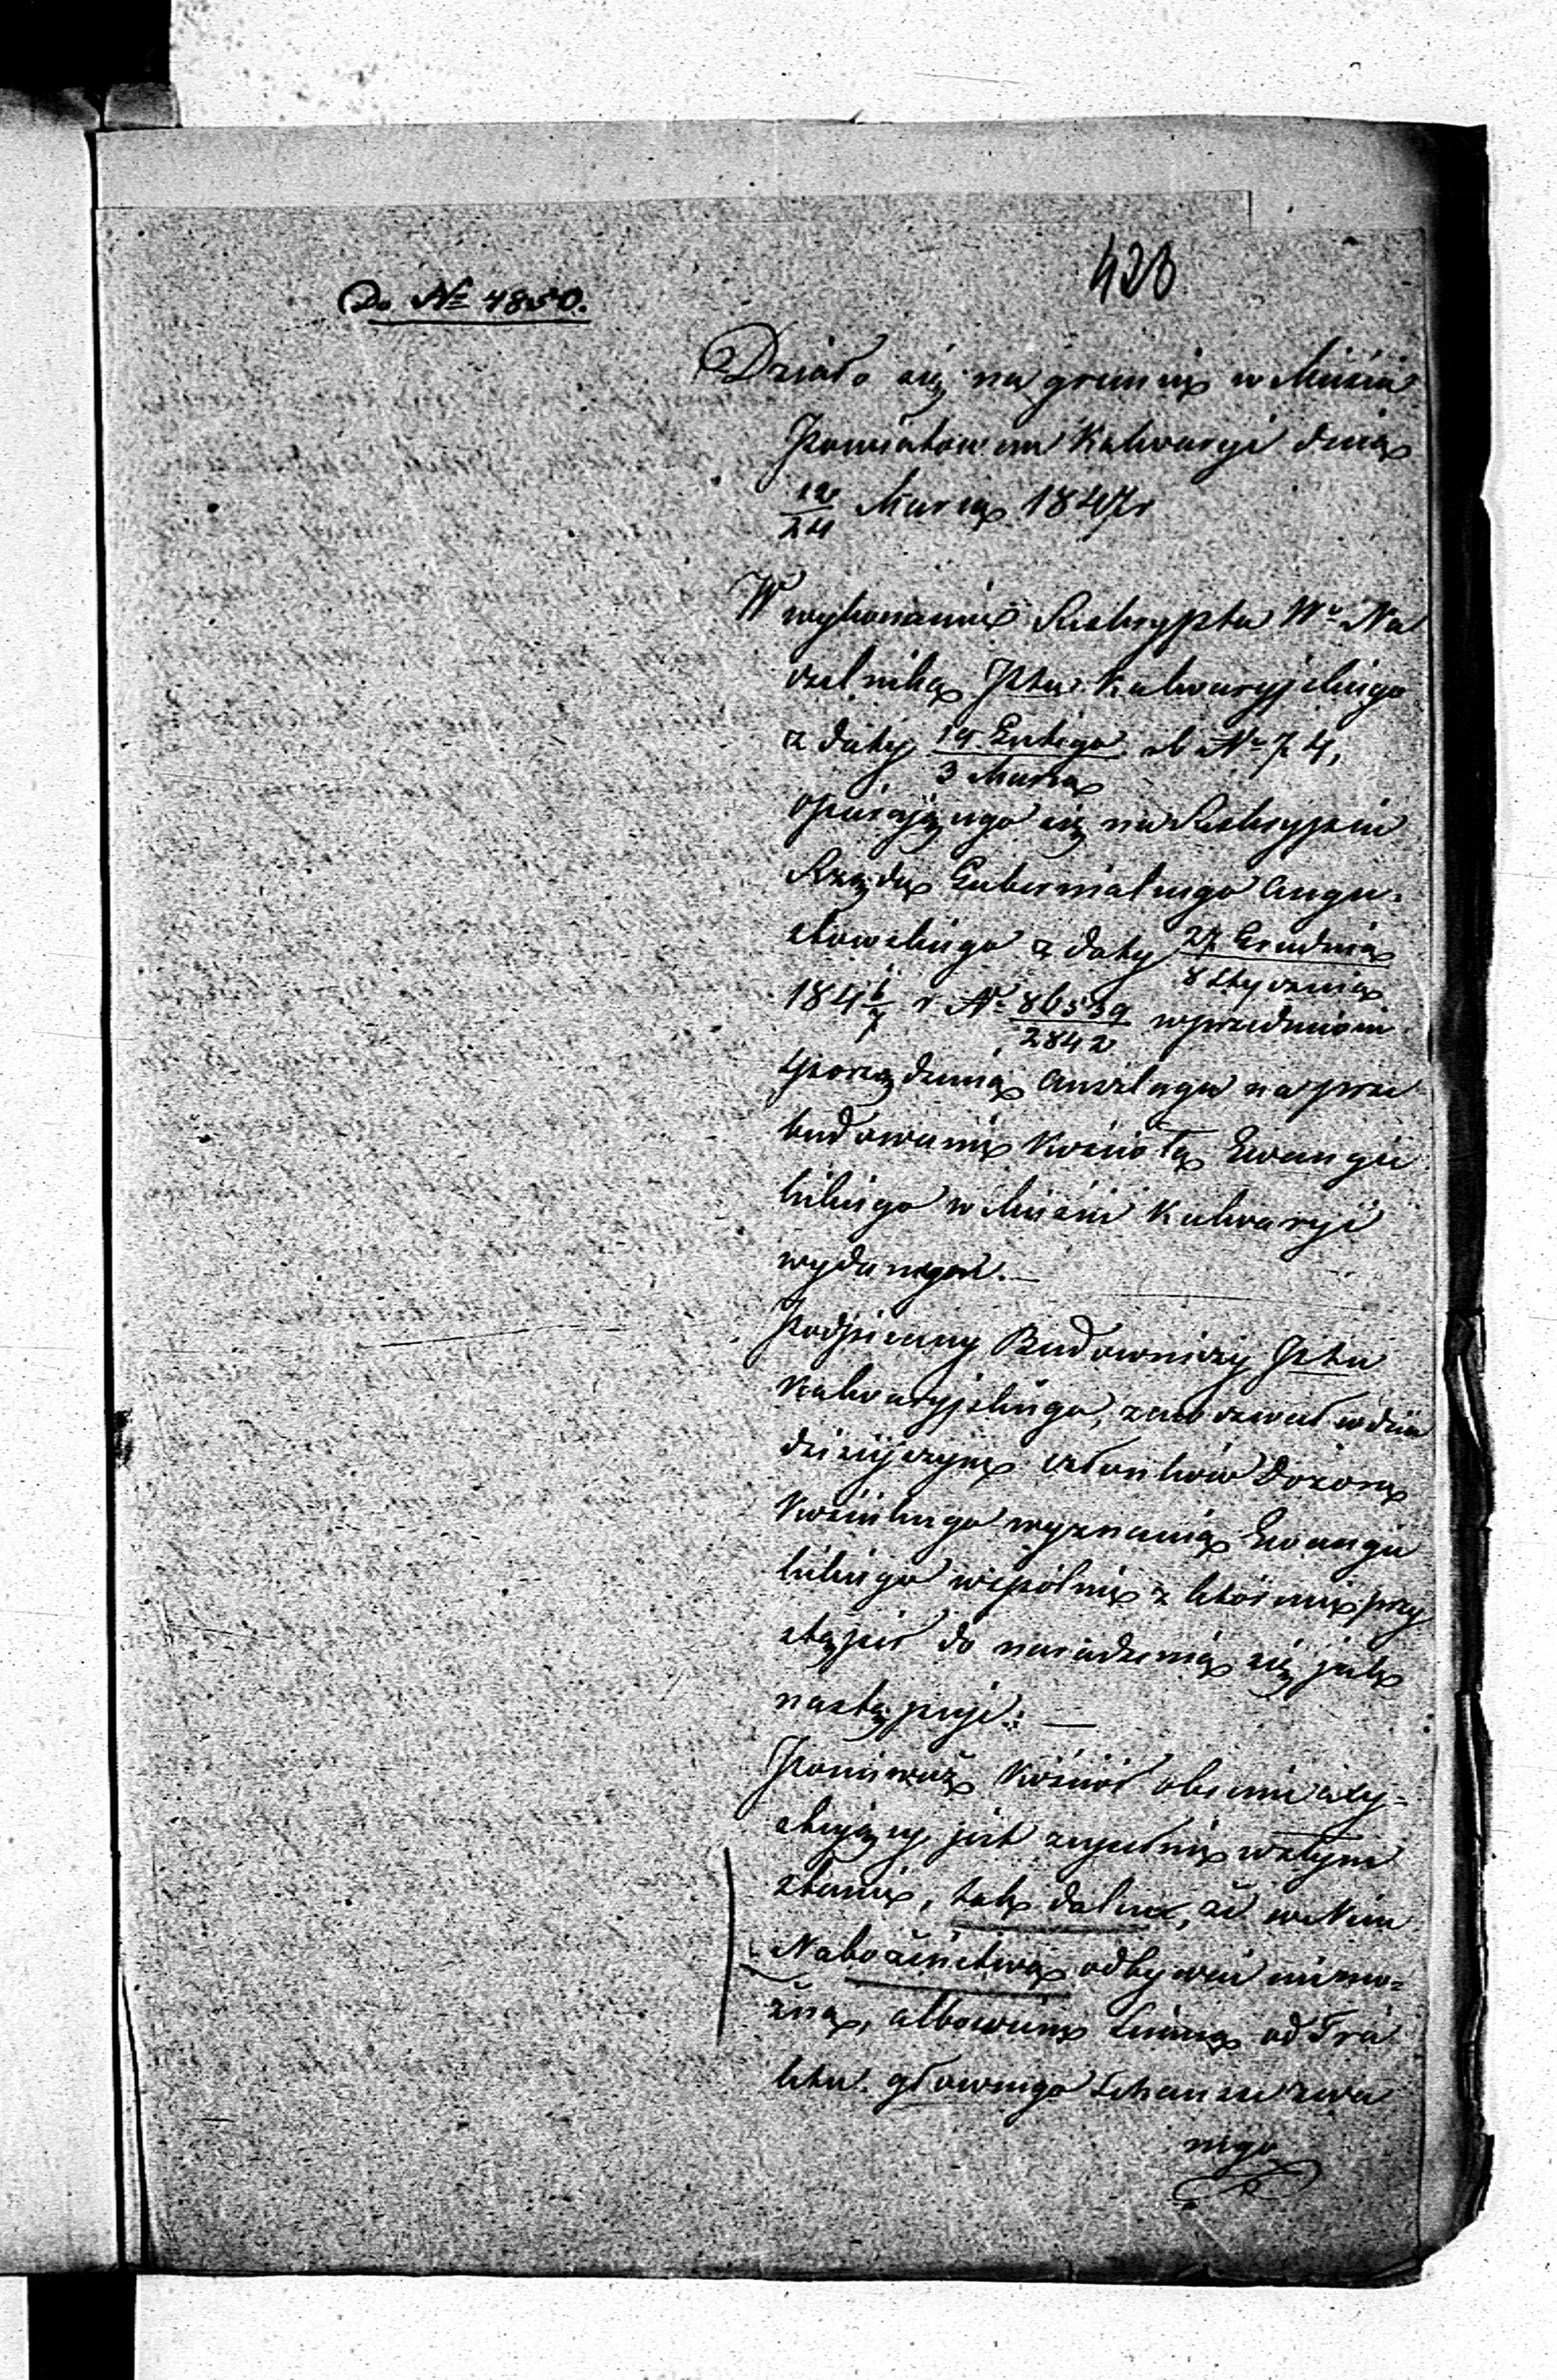 428
Do № 4850.
Działo się na gruncie w Mieście
Powiatowem Kalwaryi dnia
12/24 Marca 1847 r
W wykonaniu Reskryptu Wo Na
czelnika Ptu Kalwaryjskiego
z daty 19 Lutego/3 Marca rb № 74,
opierającego się na Reskrypcie
Rządu Gubernialnego Augu-
stowskiego z daty 27 Grudnia/8 Stycznia
184 6/7 r № 86539/2842 w przedmiocie
sporządzenia Anszlagu na prze
budowanie Kościoła Ewangie
lickiego w Mieście Kalwaryi
wydanego. —
Podpisany Budowniczy Ptu
Kalwaryjskiego, zawezwał w dniu
dzisiejszym członków Dozoru
Kościelnego wyznania Ewangie
lickiego wspólnie z któremi przy
stąpił do naradzenia się jak
następuje: —
Ponieważ Kościół obecnie exy-
stujący, jest zupełnie w złym
stanie, tak dalece, że w Nim
Nabożeństwa odbywać niemo-
żna, albowiem Linia od Tra
ktu głównego Szhansse zwa
nego